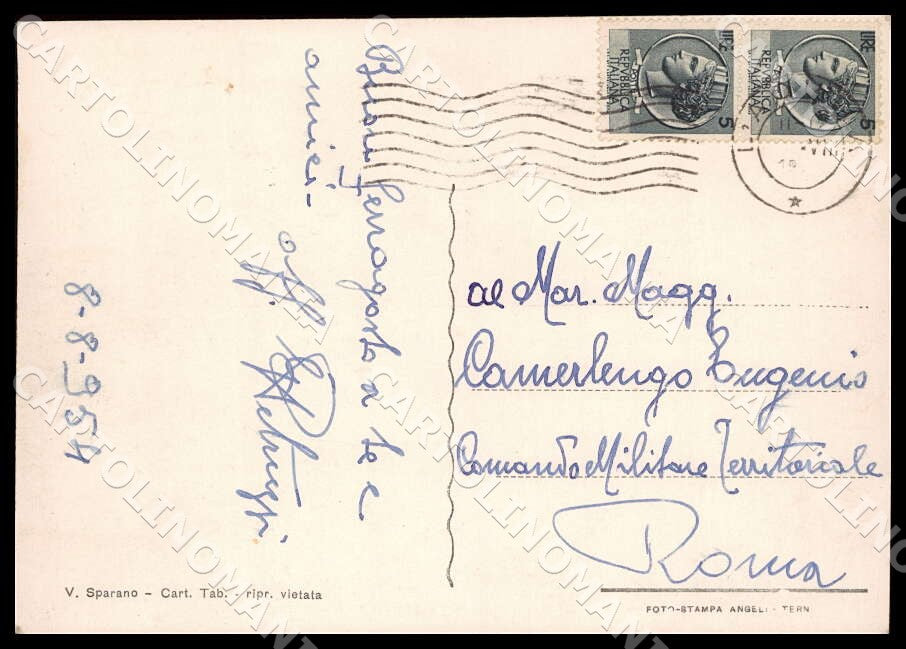 Buon Ferragosto a te e
amici -
aff.
8-8-954
al Mar. Magg.
Camerlengo Eugenio
Comando Militare Territoriale
Roma
V. Sparano - Cart. Tab. - ripr. vietata
FOTO-STAMPA ANGELI - TERNI
LIRE 5
REPVBBLICA
ITALIANA
LIRE 5
REPVBBLICA
ITALIANA
CARTOLINOMANIA